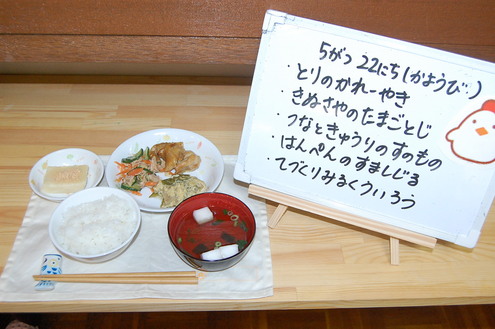 5がつ 22にち(かようび)
・とりのかれーやき
・きぬさやのたまごとじ
・つなときゅうりのすのもの
・はんぺんのすましじる
・てづくりみるくういろう